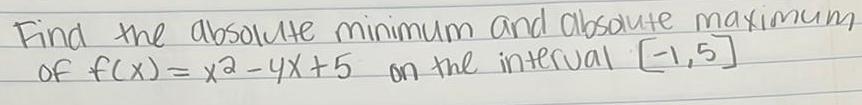 Find the absolute minimum and absolute maximum
of f(x) = x² - 4x + 5 on the interval [-1,5]